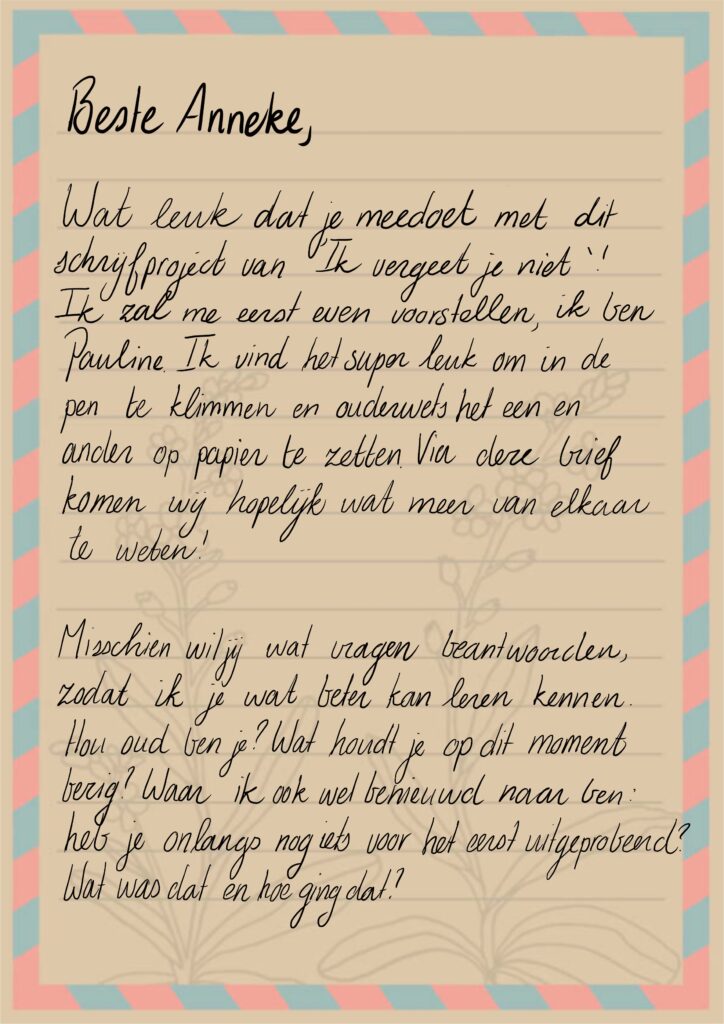 Beste Anneke,
Wat leuk dat je meedoet met dit
schrijfproject van "Ik vergeet je niet"!
Ik zal me eerst even voorstellen, ik ben
Pauline. Ik vind het super leuk om in de
pen te klimmen en ouderwets het een en
ander op papier te zetten. Via deze brief
komen wij hopelijk wat meer van elkaar
te weten!
Misschien wil jij wat vragen beantwoorden,
zodat ik je wat beter kan leren kennen.
Hou oud ben je? Wat houdt je op dit moment
bezig? Waar ik ook wel benieuwd naar ben:
heb je onlangs nog iets voor het eerst uitgeprobeerd?
Wat was dat en hoe ging dat?